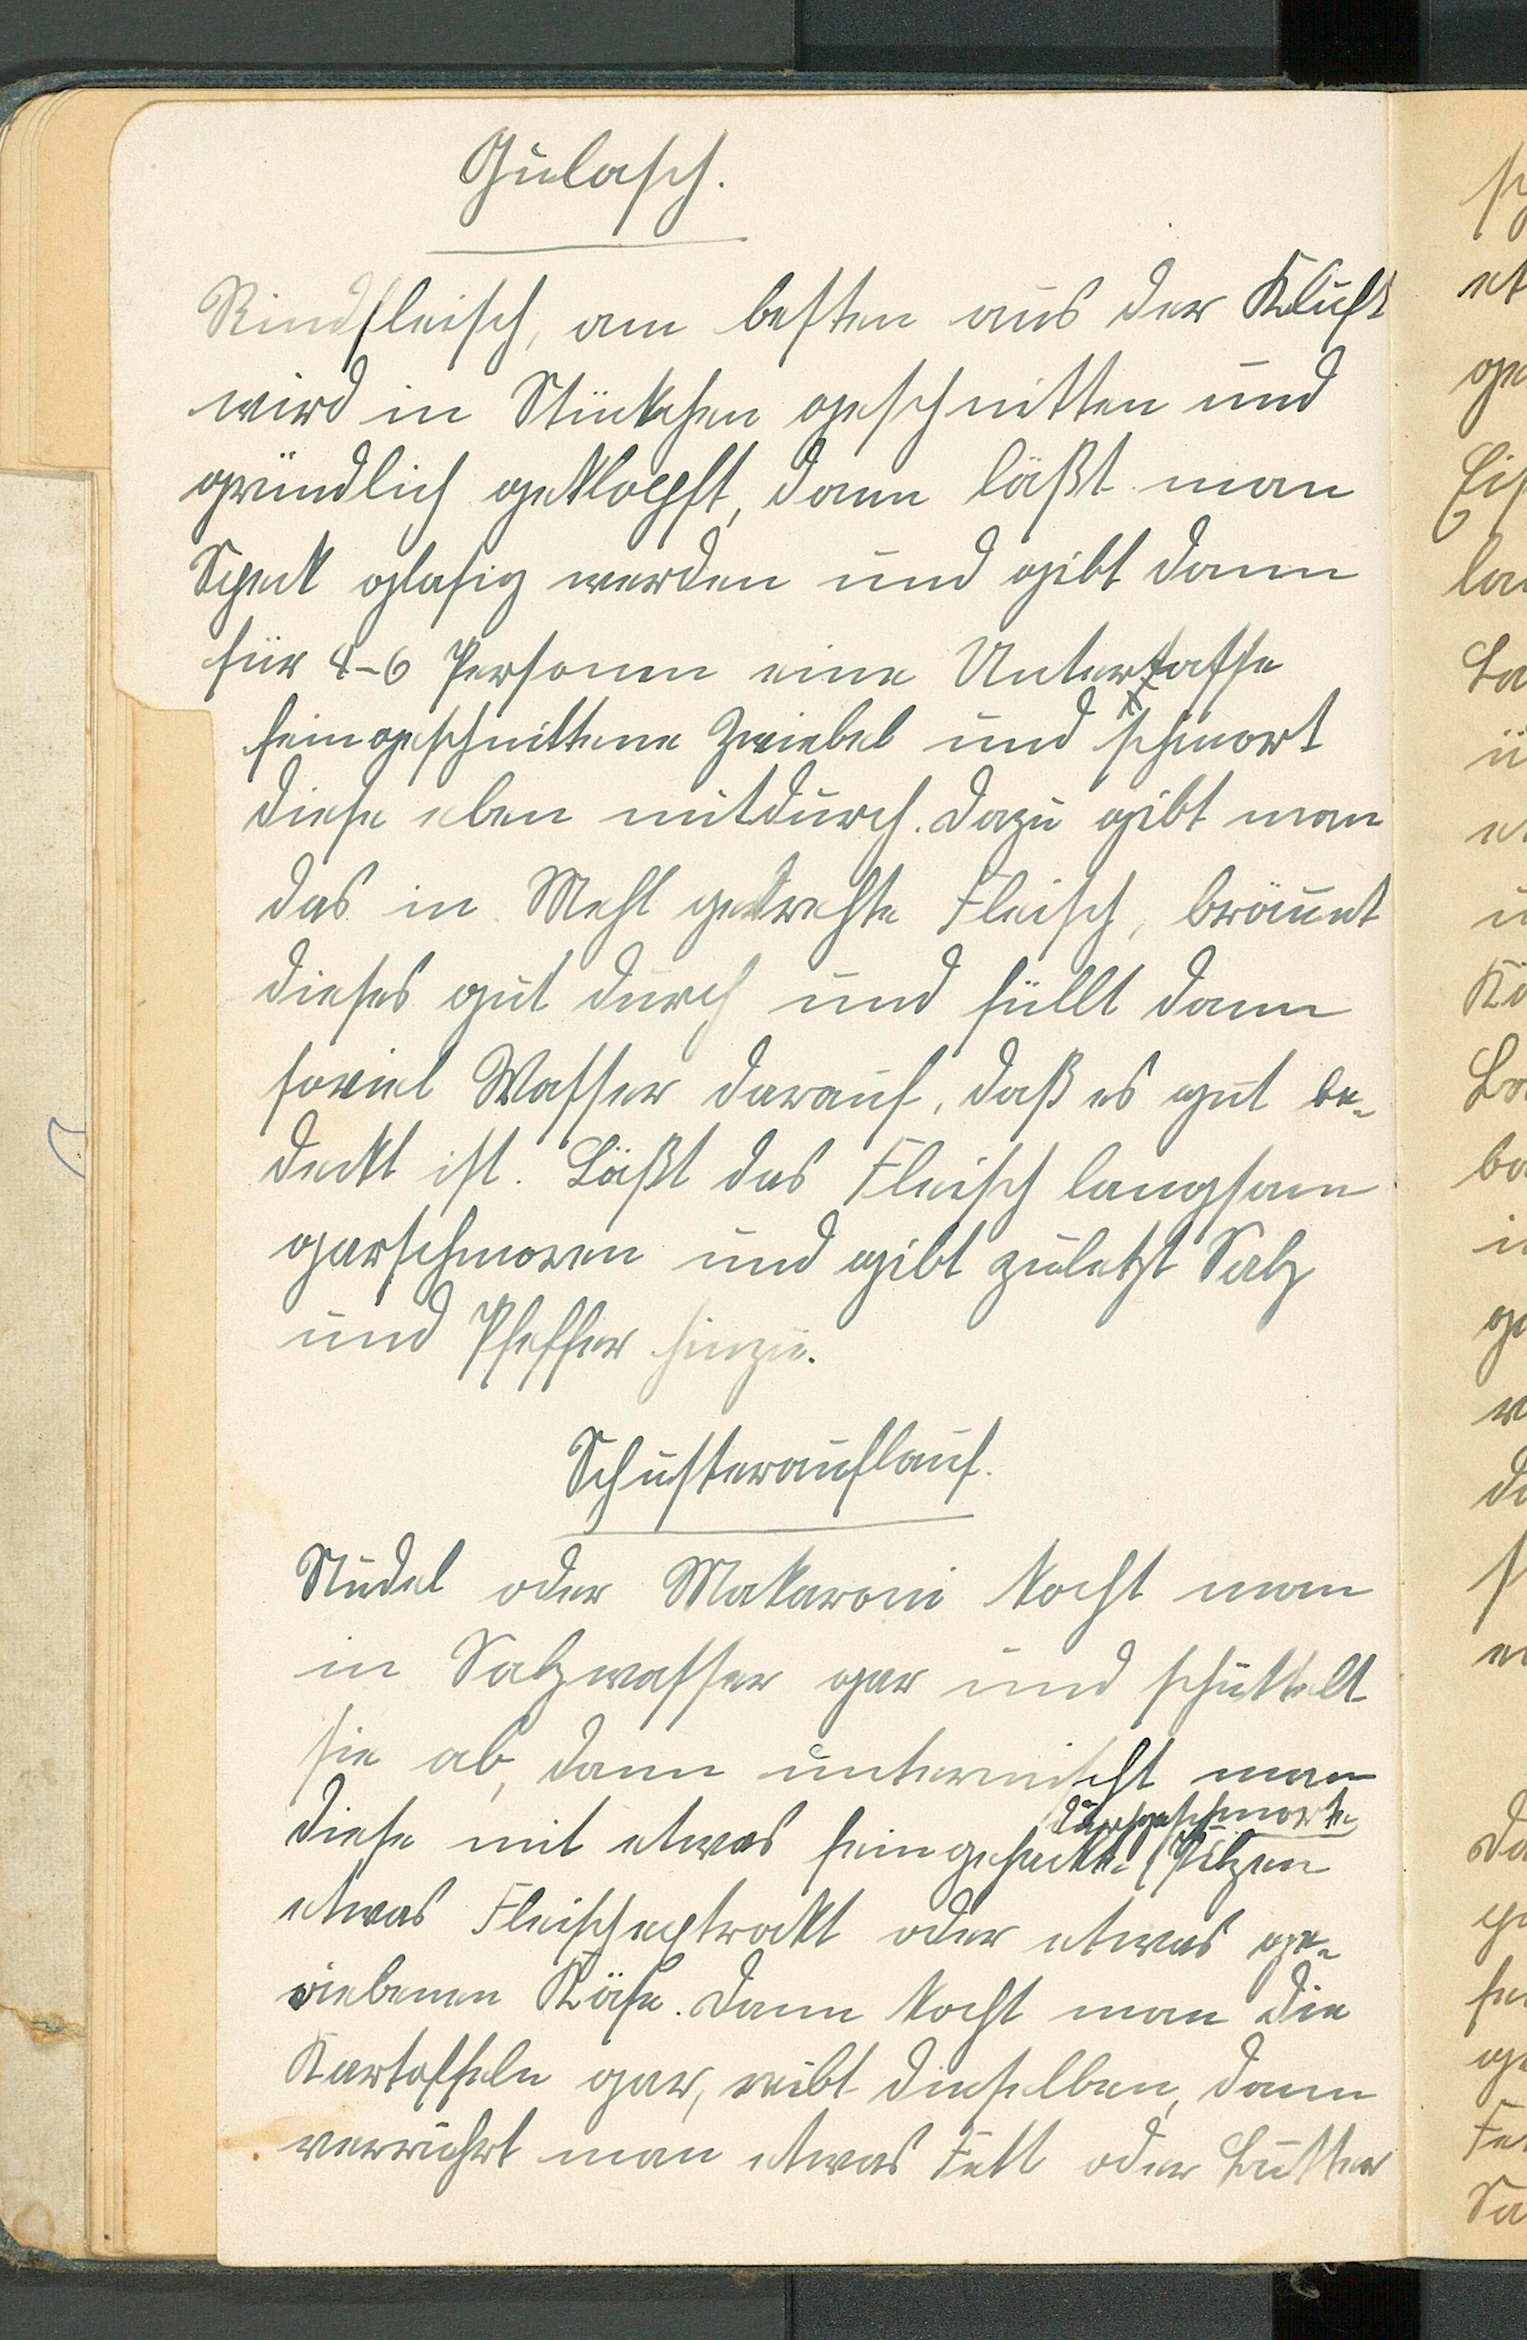 Gulasch.
Rindfleisch, am besten aus der Kluft
wird in Stückchen geschnitten und
gründlich geklopft, dann läßt man
Speck glasig werden und gibt dann
für 4-6 Personen eine Untertasse
feingeschnittene Zwiebel und schmort
diese eben mitdurch. Dazu gibt man
das in Mehl gedrehte Fleisch, bräunt
dieses gut durch und füllt dann
soviel Wasser darauf, daß es gut be-
deckt ist. Läßt das Fleisch langsam
garschmoren und gibt zuletzt Salz
und Pfeffer hinzu.
Schusterauflauf.
Nudel oder Makaroni kocht man
in Salzwasser gar und schüttelt
sie ab, dann untermischt man
durchgeschmorte
diese mit etwas feingehackte Pilzen
etwas Fleischextrakt oder etwas ge-
riebenen Käse. Dann kocht man die
Kartoffeln gar, reibt dieselben, dann
verrührt man etwas Fett oder Butter